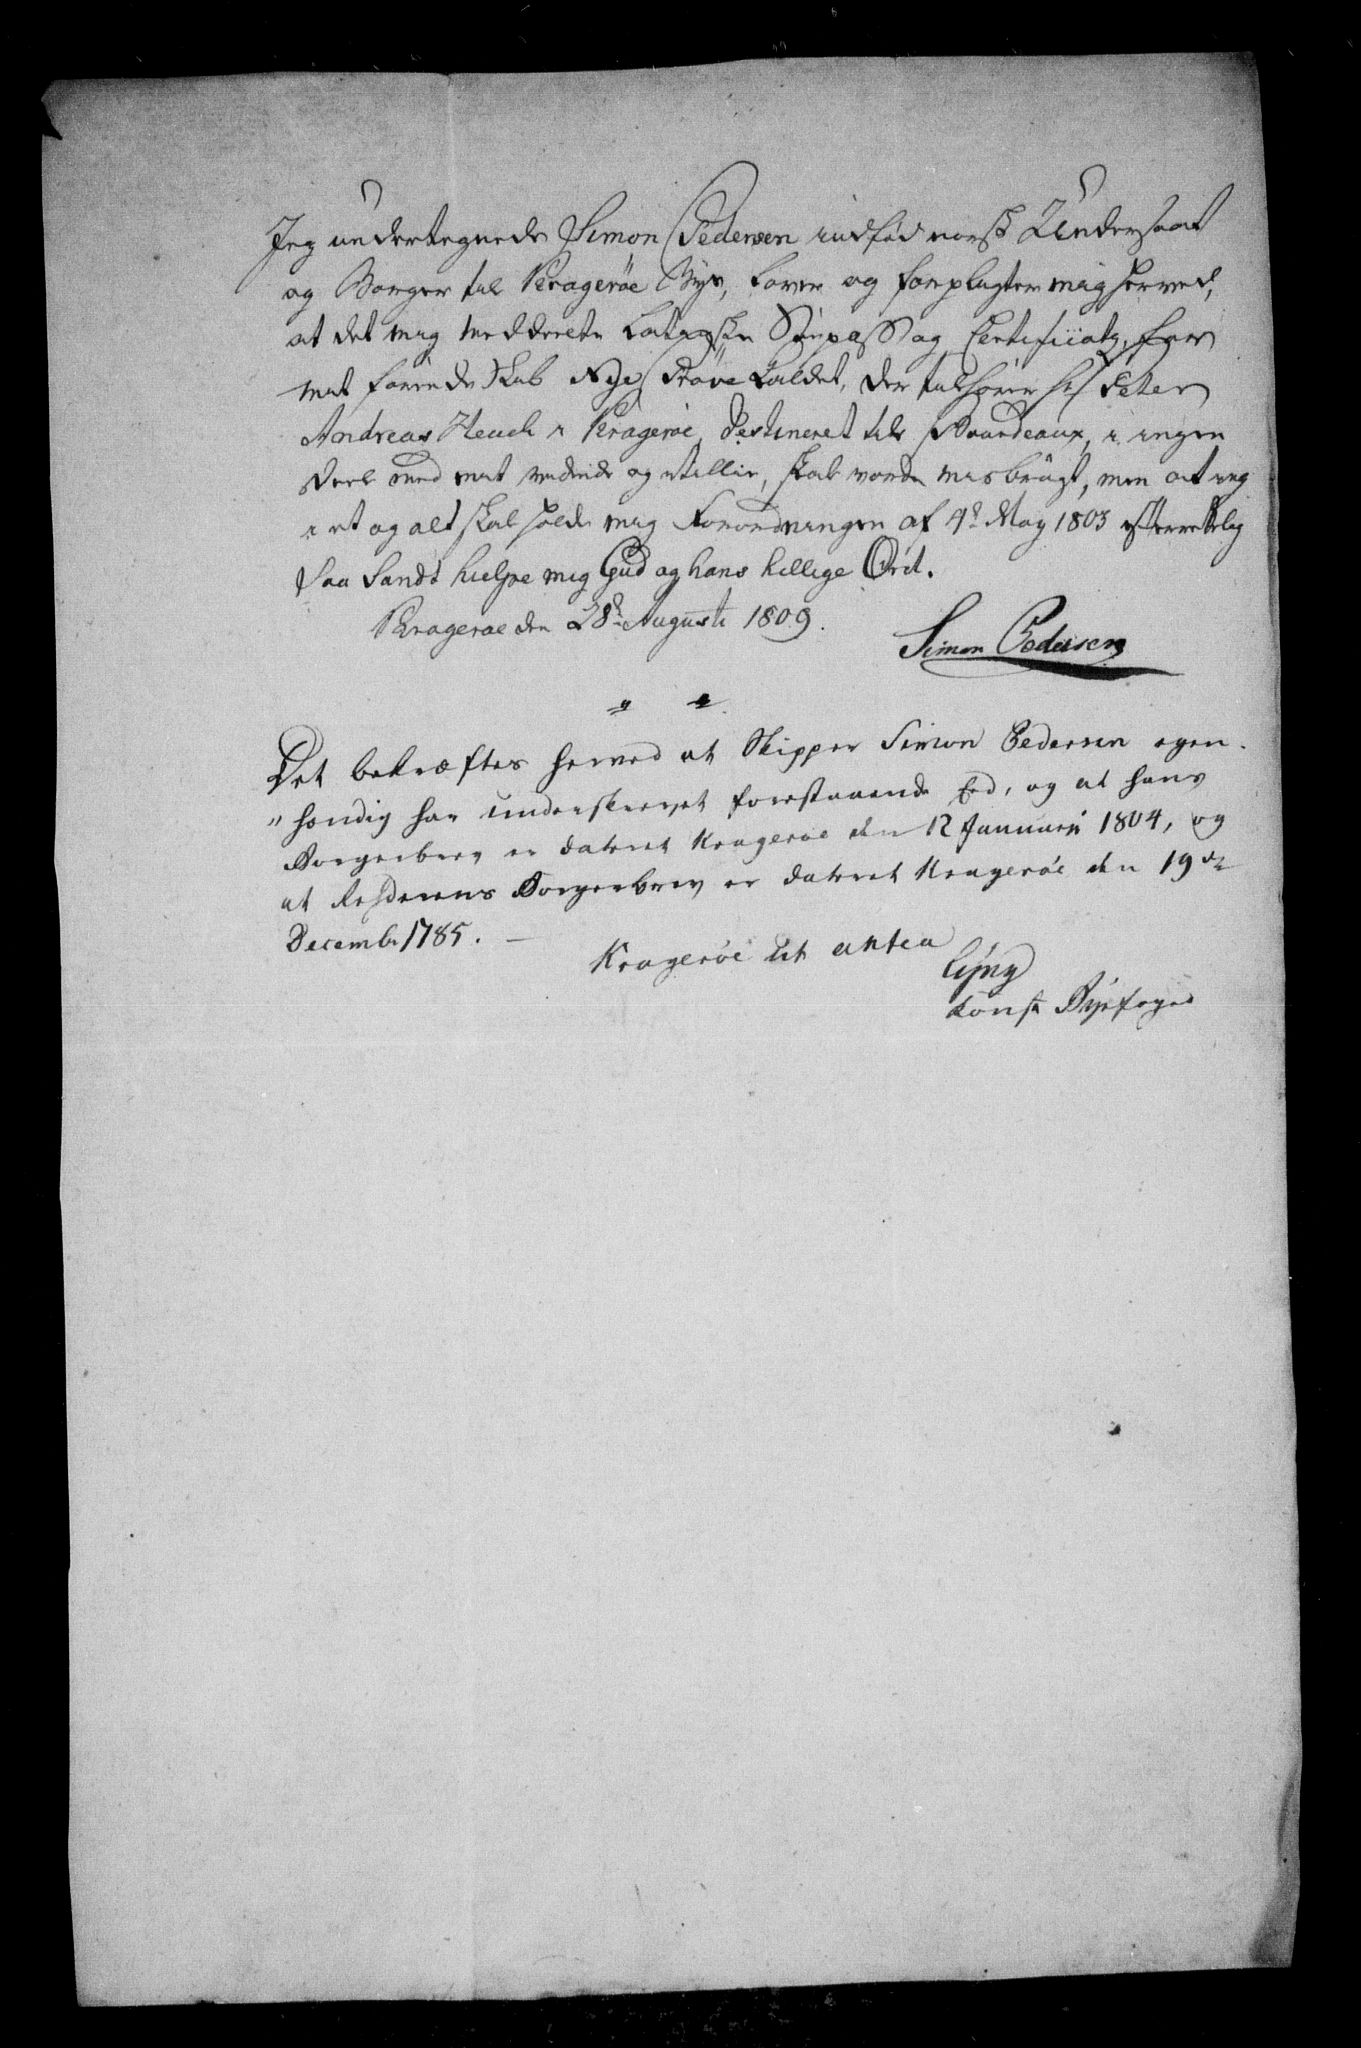 Jeg undertegnede Simon Pedersen indfød norsk Undersaat
og Borger til Kragerøe Bye, lover og forpligter mig herved,
at det mig meddeelte Latinske Søepass og Certificats, for
mit førende Skib Nye Prøve kaldet, der tilhører Hr Peter
Andreas Heuch i Kragerøe, destineret til Bourdeaux, i ingen
Deel med mit vidende og villie, skal vorde misbrugt, men at jeg
i et og alt skal holde mig Forordningen af 4d May 1803 efterrettelig
saa Sandt hielpe mig Gud og hans hellige Ord.
Kragerøe den 28d Augusti 1809.
Simon Pedersen
Det bekræftes herved at Skipper Simon Pedersen egen-
hændig har underskrevet forestaaende Eed, og at hans
Borgerbrev er dateret Kragerøe den 12 Januarii 1804, og
at Rhederens Borgerbrev er dateret Kragerøe den 19de
Decembr 1785. –
Kragerøe ut antea
const Byefoged